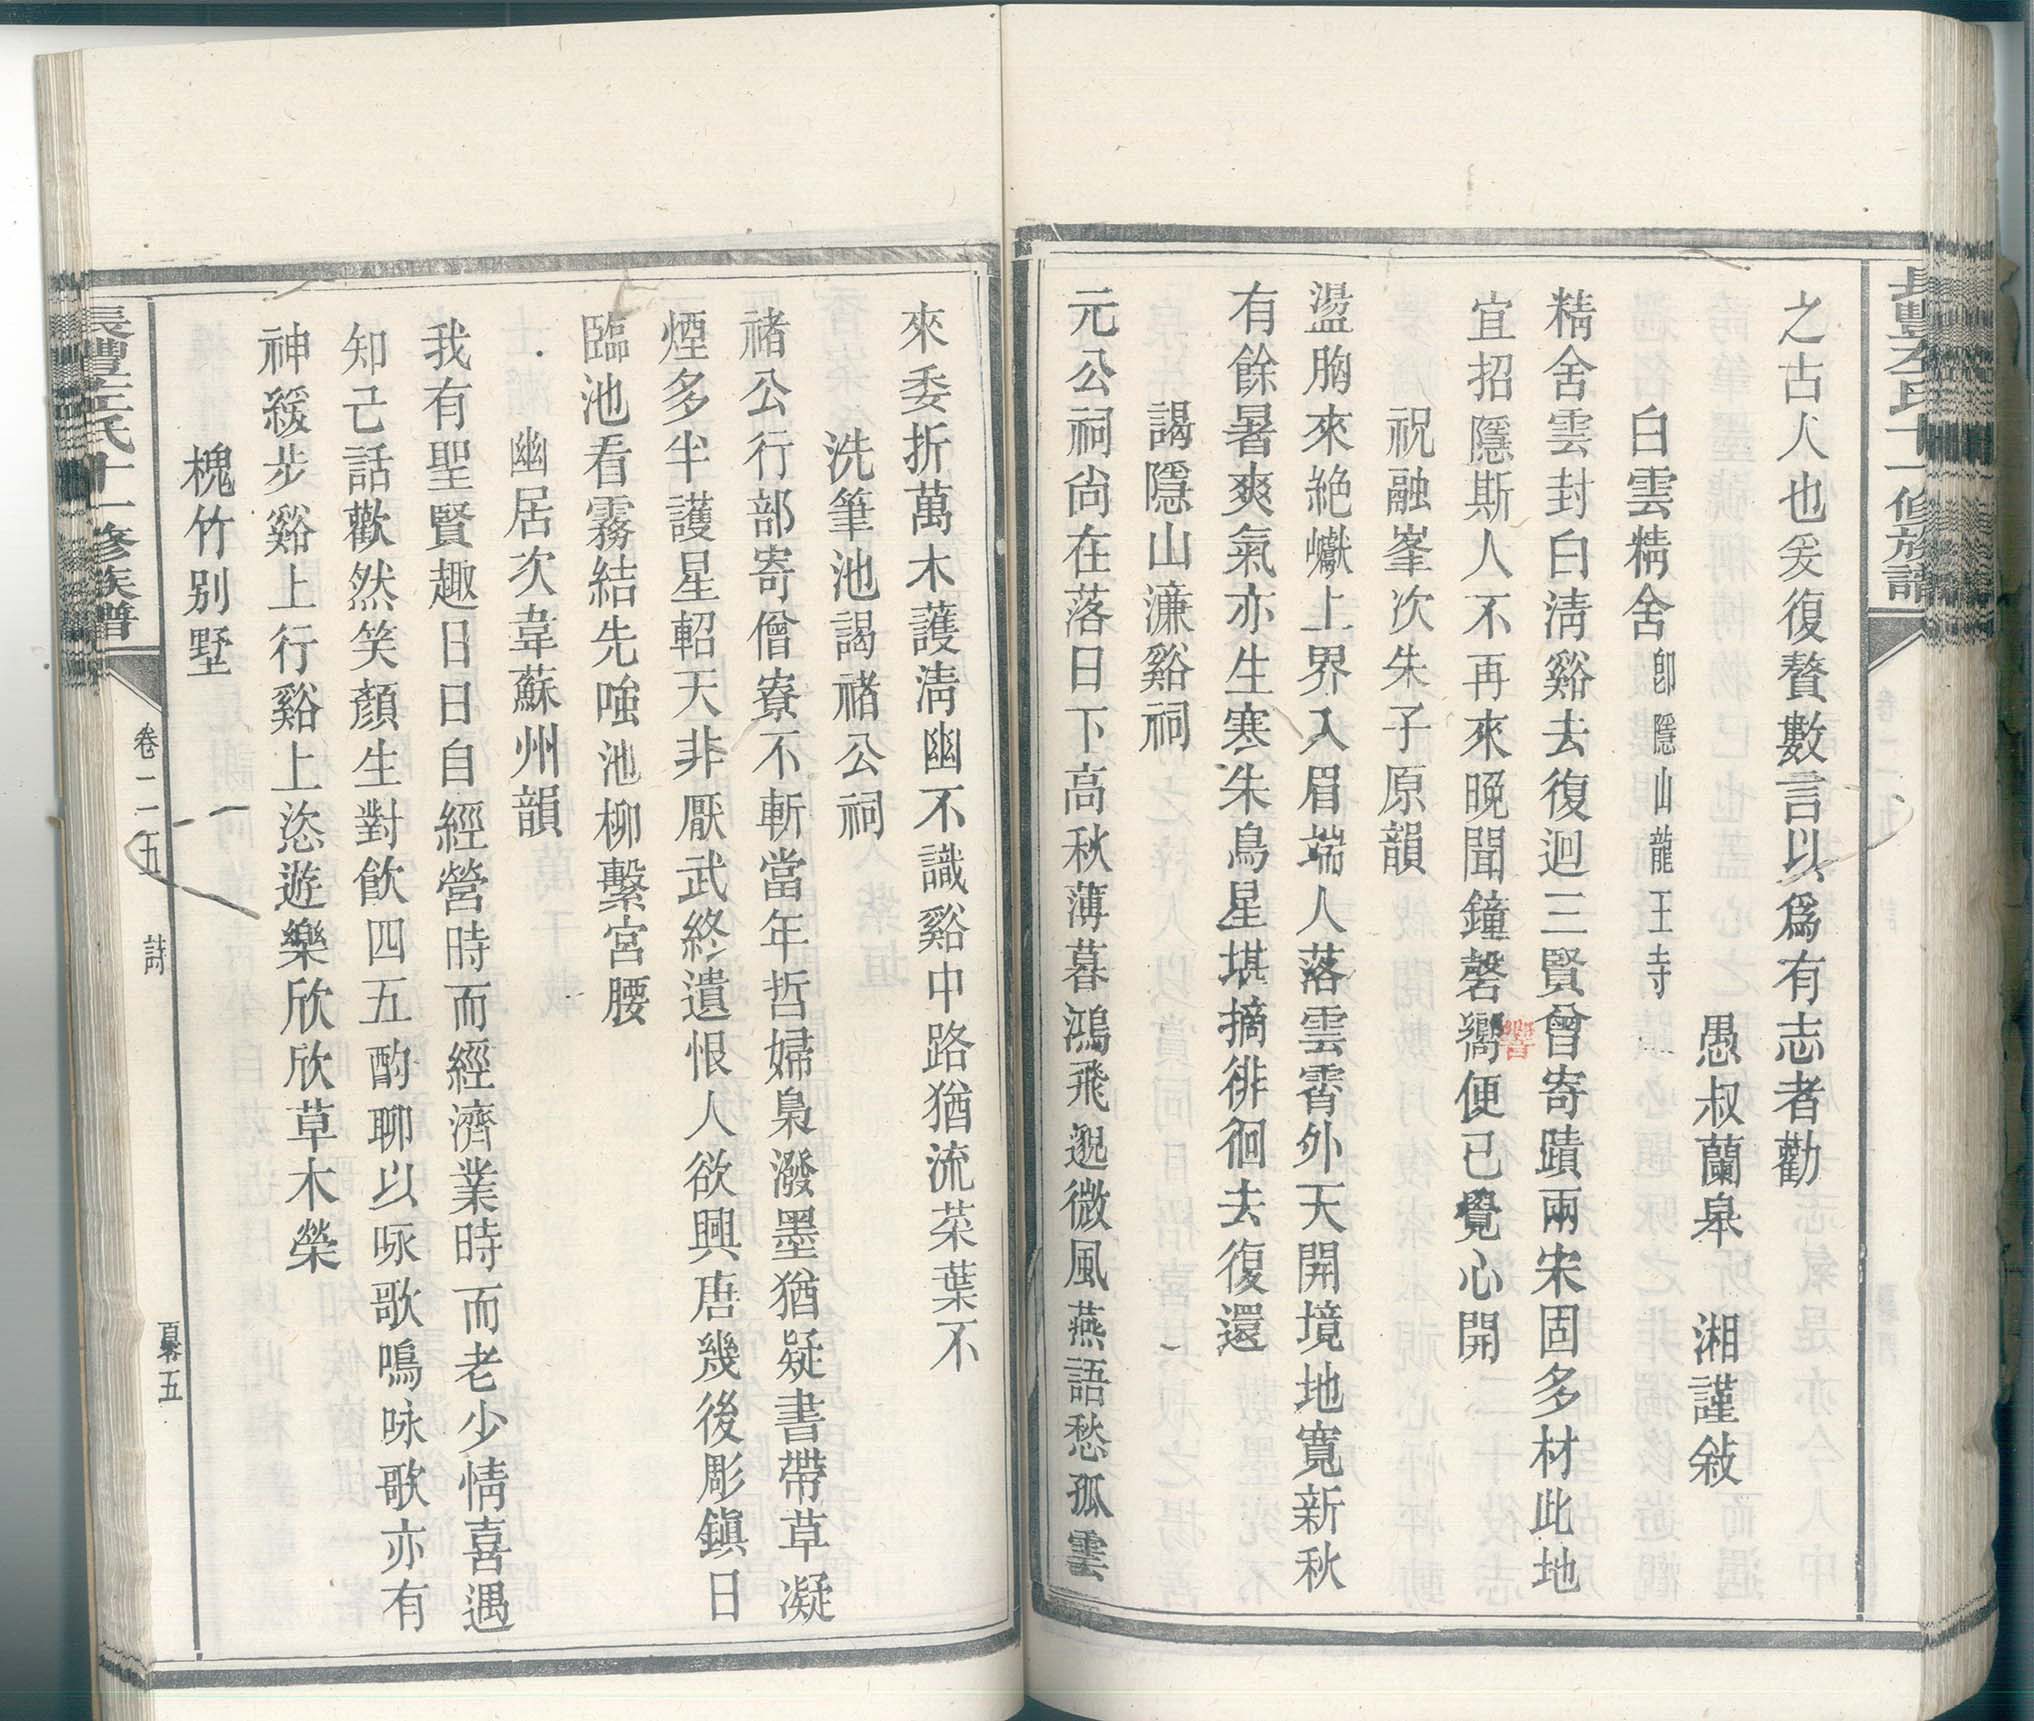 長豐左氏十一修族譜
之古人也爰復贅數言以爲有志者勸
愚叔蘭皋　湘謹敍
白雲精舍卽隱山龍王寺
精舍雲封白淸谿去復迴三賢曾寄蹟兩宋固多材此地
宜招隱斯人不再來晚聞鐘磬嚮便已覺心開
響
祝融峯次朱子原韻
盪胸來絕巘上界入眉端人落雲霄外天開境地寬新秋
有餘暑爽氣亦生寒朱鳥星堪摘徘徊去復還
謁隱山濂谿祠
元公祠尙在落日下高秋薄暮鴻飛邈微風燕語愁孤雲
來委折萬木護淸幽不識谿中路猶流菜葉不
洗筆池謁禇公祠
禇公行部寄僧寮不斬當年哲婦梟潑墨猶疑書帶草凝
煙多半護星軺天非厭武終遺恨人欲興唐幾後彫鎭日
臨池看霧結先嗤池柳繫宮腰
幽居次韋蘇州韻
我有聖賢趣日日自經營時而經濟業時而老少情喜遇
知己話歡然笑顏生對飮四五酌聊以咏歌鳴咏歌亦有
神緩步谿上行谿上恣遊樂欣欣草木榮
槐竹別墅
長豐左氏十一修族譜
卷二五
詩
百零五